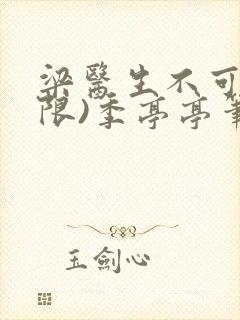 梁醫生不可
限)季亭亭
玉劍心